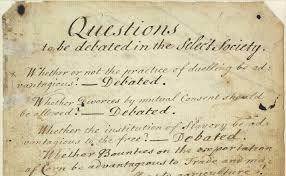 Questions
to be debated in the Select Society.
Whether or not the practice of duelling be ad-
vantagious? — Debated.
Whether Divorces by mutual Consent should
be allowed? — Debated.
Whether the institution of Slavery be ad-
vantagious to the free? — Debated.
Whether Bounties on the exportation
of Corn be advantagious to Trade and ma-
to agriculture